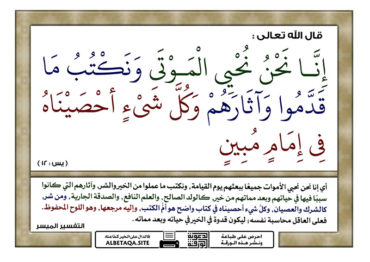 قال الله تعالى :
إِنَّا نَحْنُ نُحْيِي الْمَوْتَى وَنَكْتُبُ مَا
قَدَّمُوا وَآثَارَهُمْ وَكُلَّ شَيْءٍ أحْصَيْنَاهُ
فِي إِمَامٍ مُبِينٍ
( يس : ١٢ )
أي إنا نحن نحيي الأموات جميعًا ببعثهم يوم القيامة، ونكتب ما عملوا من الخير والشر، وآثارهم التي كانوا
سببًا فيها في حياتهم وبعد مماتهم من خير، كالولد الصالح، والعلم النافع، والصدقة الجارية، ومن شر،
كالشرك والعصيان، وكلَّ شيء أحصيناه في كتاب واضح هو أمُّ الكتب، وإليه مرجعها، وهو اللوح المحفوظ.
فعلى العاقل محاسبة نفسه؛ ليكون قدوة في الخير في حياته وبعد مماته.
التفسير الميسر
احرص على طباعة
ونشر هذه الورقة
فالدال على الخير كفاعله
ALBETAQA.SITE